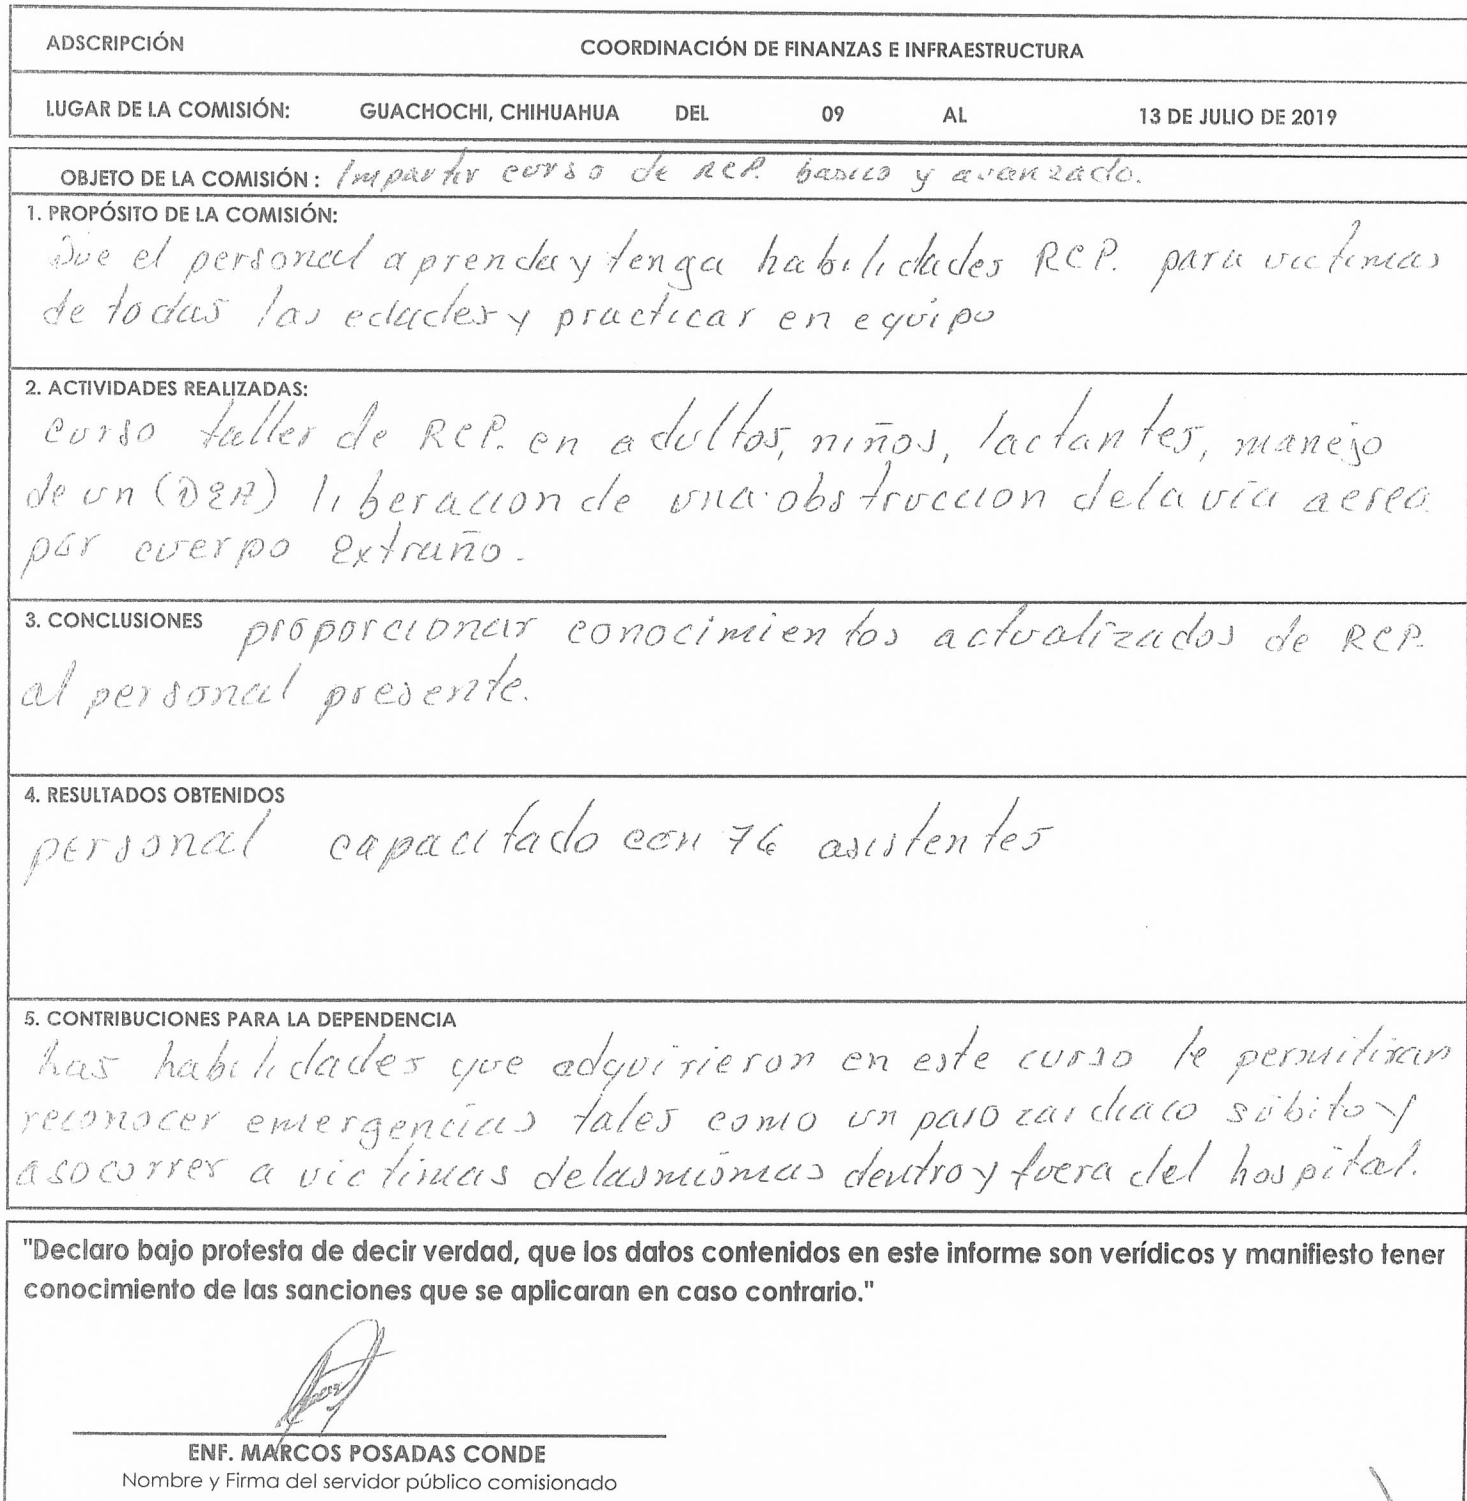 ADSCRIPCIÓN COORDINACIÓN DE FINANZAS E INFRAESTRUCTURA
LUGAR DE LA COMISIÓN: GUACHOCHI, CHIHUAHUA DEL 09 AL 13 DE JULIO DE 2019
OBJETO DE LA COMISIÓN : Impartir curso de RCP. basico y avanzado.
1. PROPÓSITO DE LA COMISIÓN:
Que el personal aprenda y tenga habilidades RCP. para victimas
de todas las edades y practicar en equipo
2. ACTIVIDADES REALIZADAS:
curso taller de RCP. en adultos, niños, lactantes, manejo
de un (DEA) liberacion de una obstruccion de la vía aerea
por cuerpo extraño.
3. CONCLUSIONES proporcionar conocimientos actualizados de RCP.
al personal presente.
4. RESULTADOS OBTENIDOS
personal capacitado con 76 asistentes
5. CONTRIBUCIONES PARA LA DEPENDENCIA
Las habilidades que adquirieron en este curso le permitiran
reconocer emergencias tales como un paro cardiaco súbito y
asocorrer a victimas de las mismas dentro y fuera del hospital.
"Declaro bajo protesta de decir verdad, que los datos contenidos en este informe son verídicos y manifiesto tener
conocimiento de las sanciones que se aplicaran en caso contrario."
ENF. MARCOS POSADAS CONDE
Nombre y Firma del servidor público comisionado